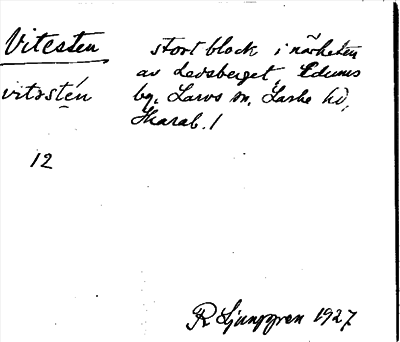 Vitesten stort block i närheten
av Ledsberget, Edums
vitəstén by, Larvs sn, Laske hd,
Skarab. l
12
R Ljunggren 1927